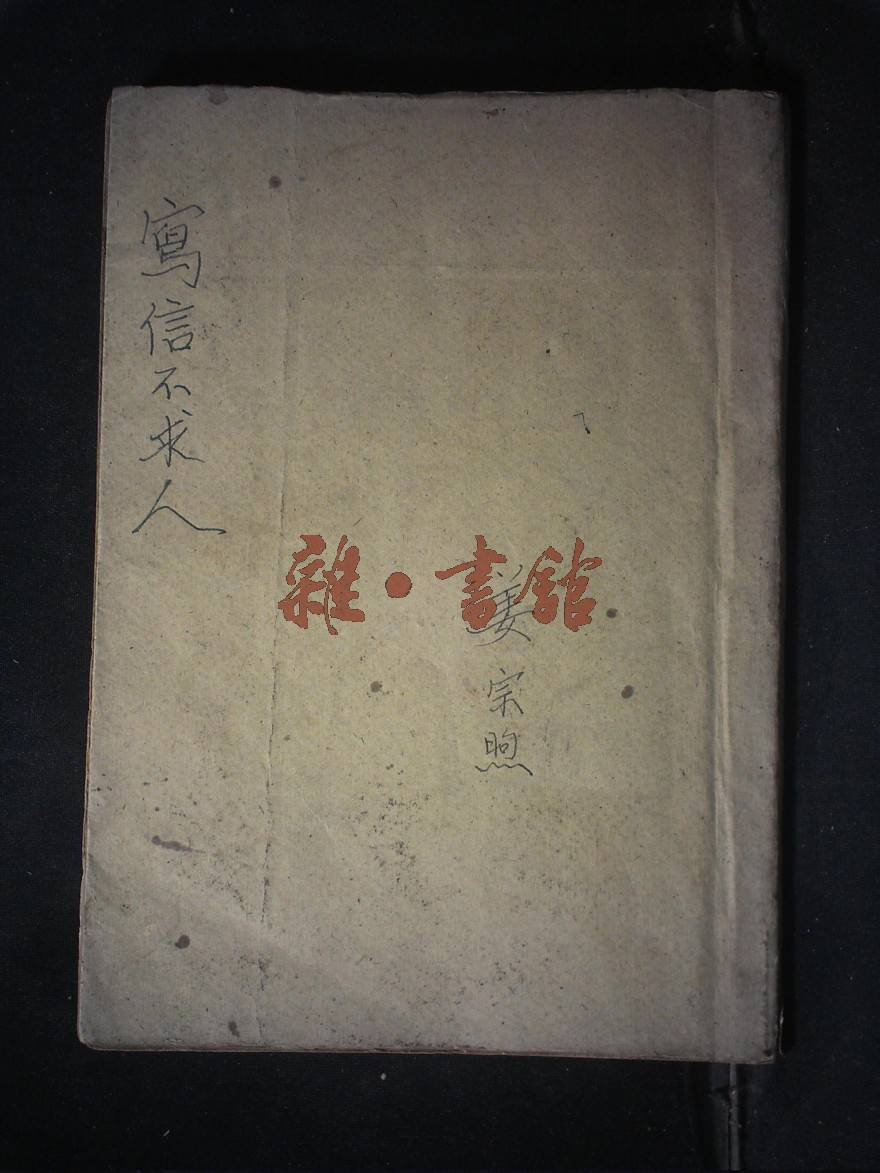 寫信不求人
雜·書館
姜宗煦